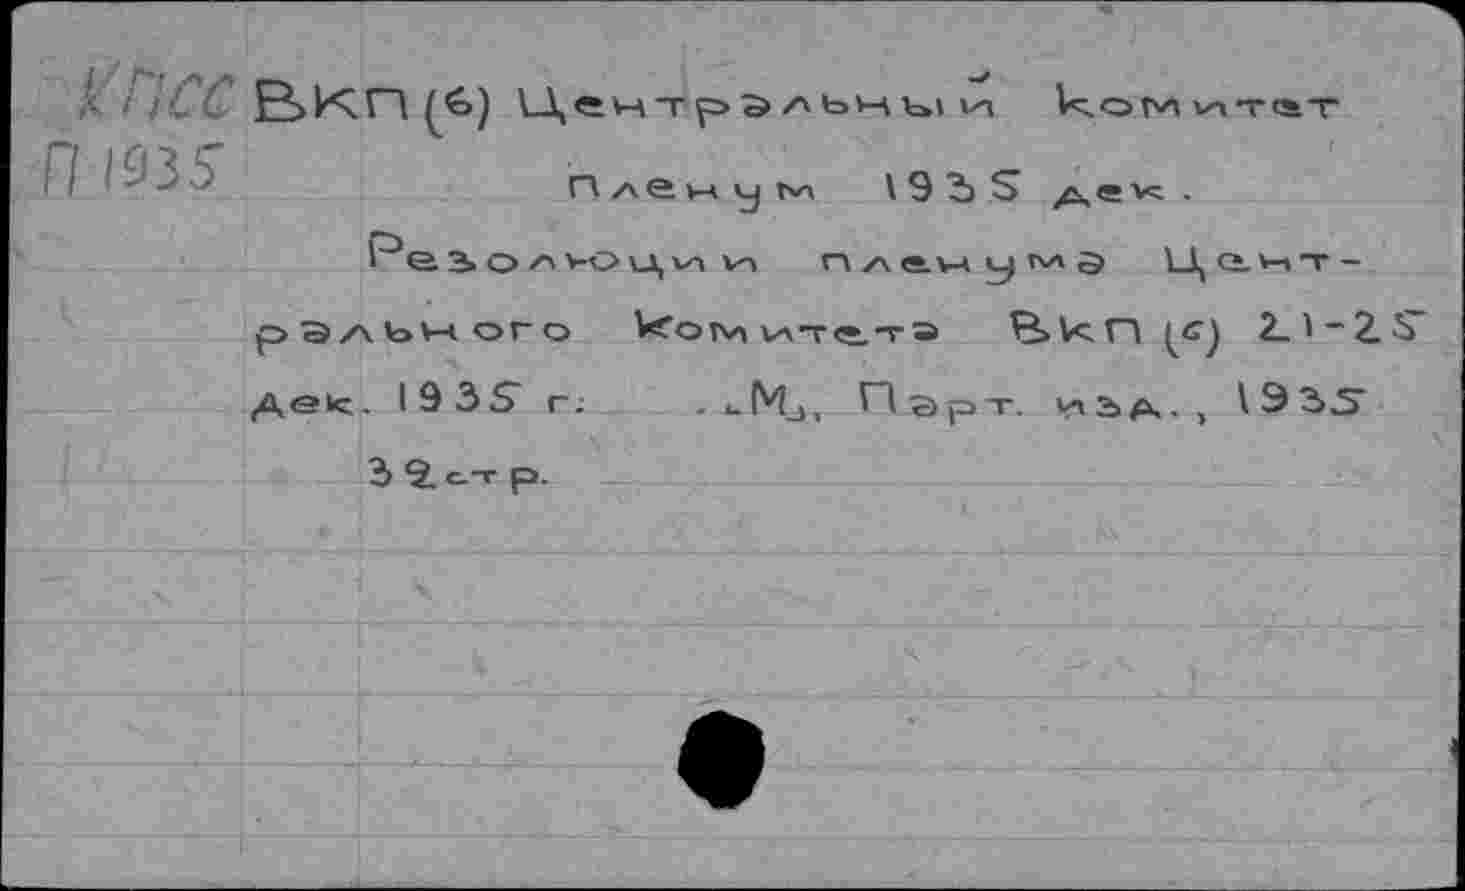 КПСС ВКП(б) Центральный комитет
П 1935 Пленум 1935 дек.
Резолюции пленума Цент-
рального Комитета ВКП(б) 21-25
дек. 1935 г. М., Парт. изд., 1935
32 стр.